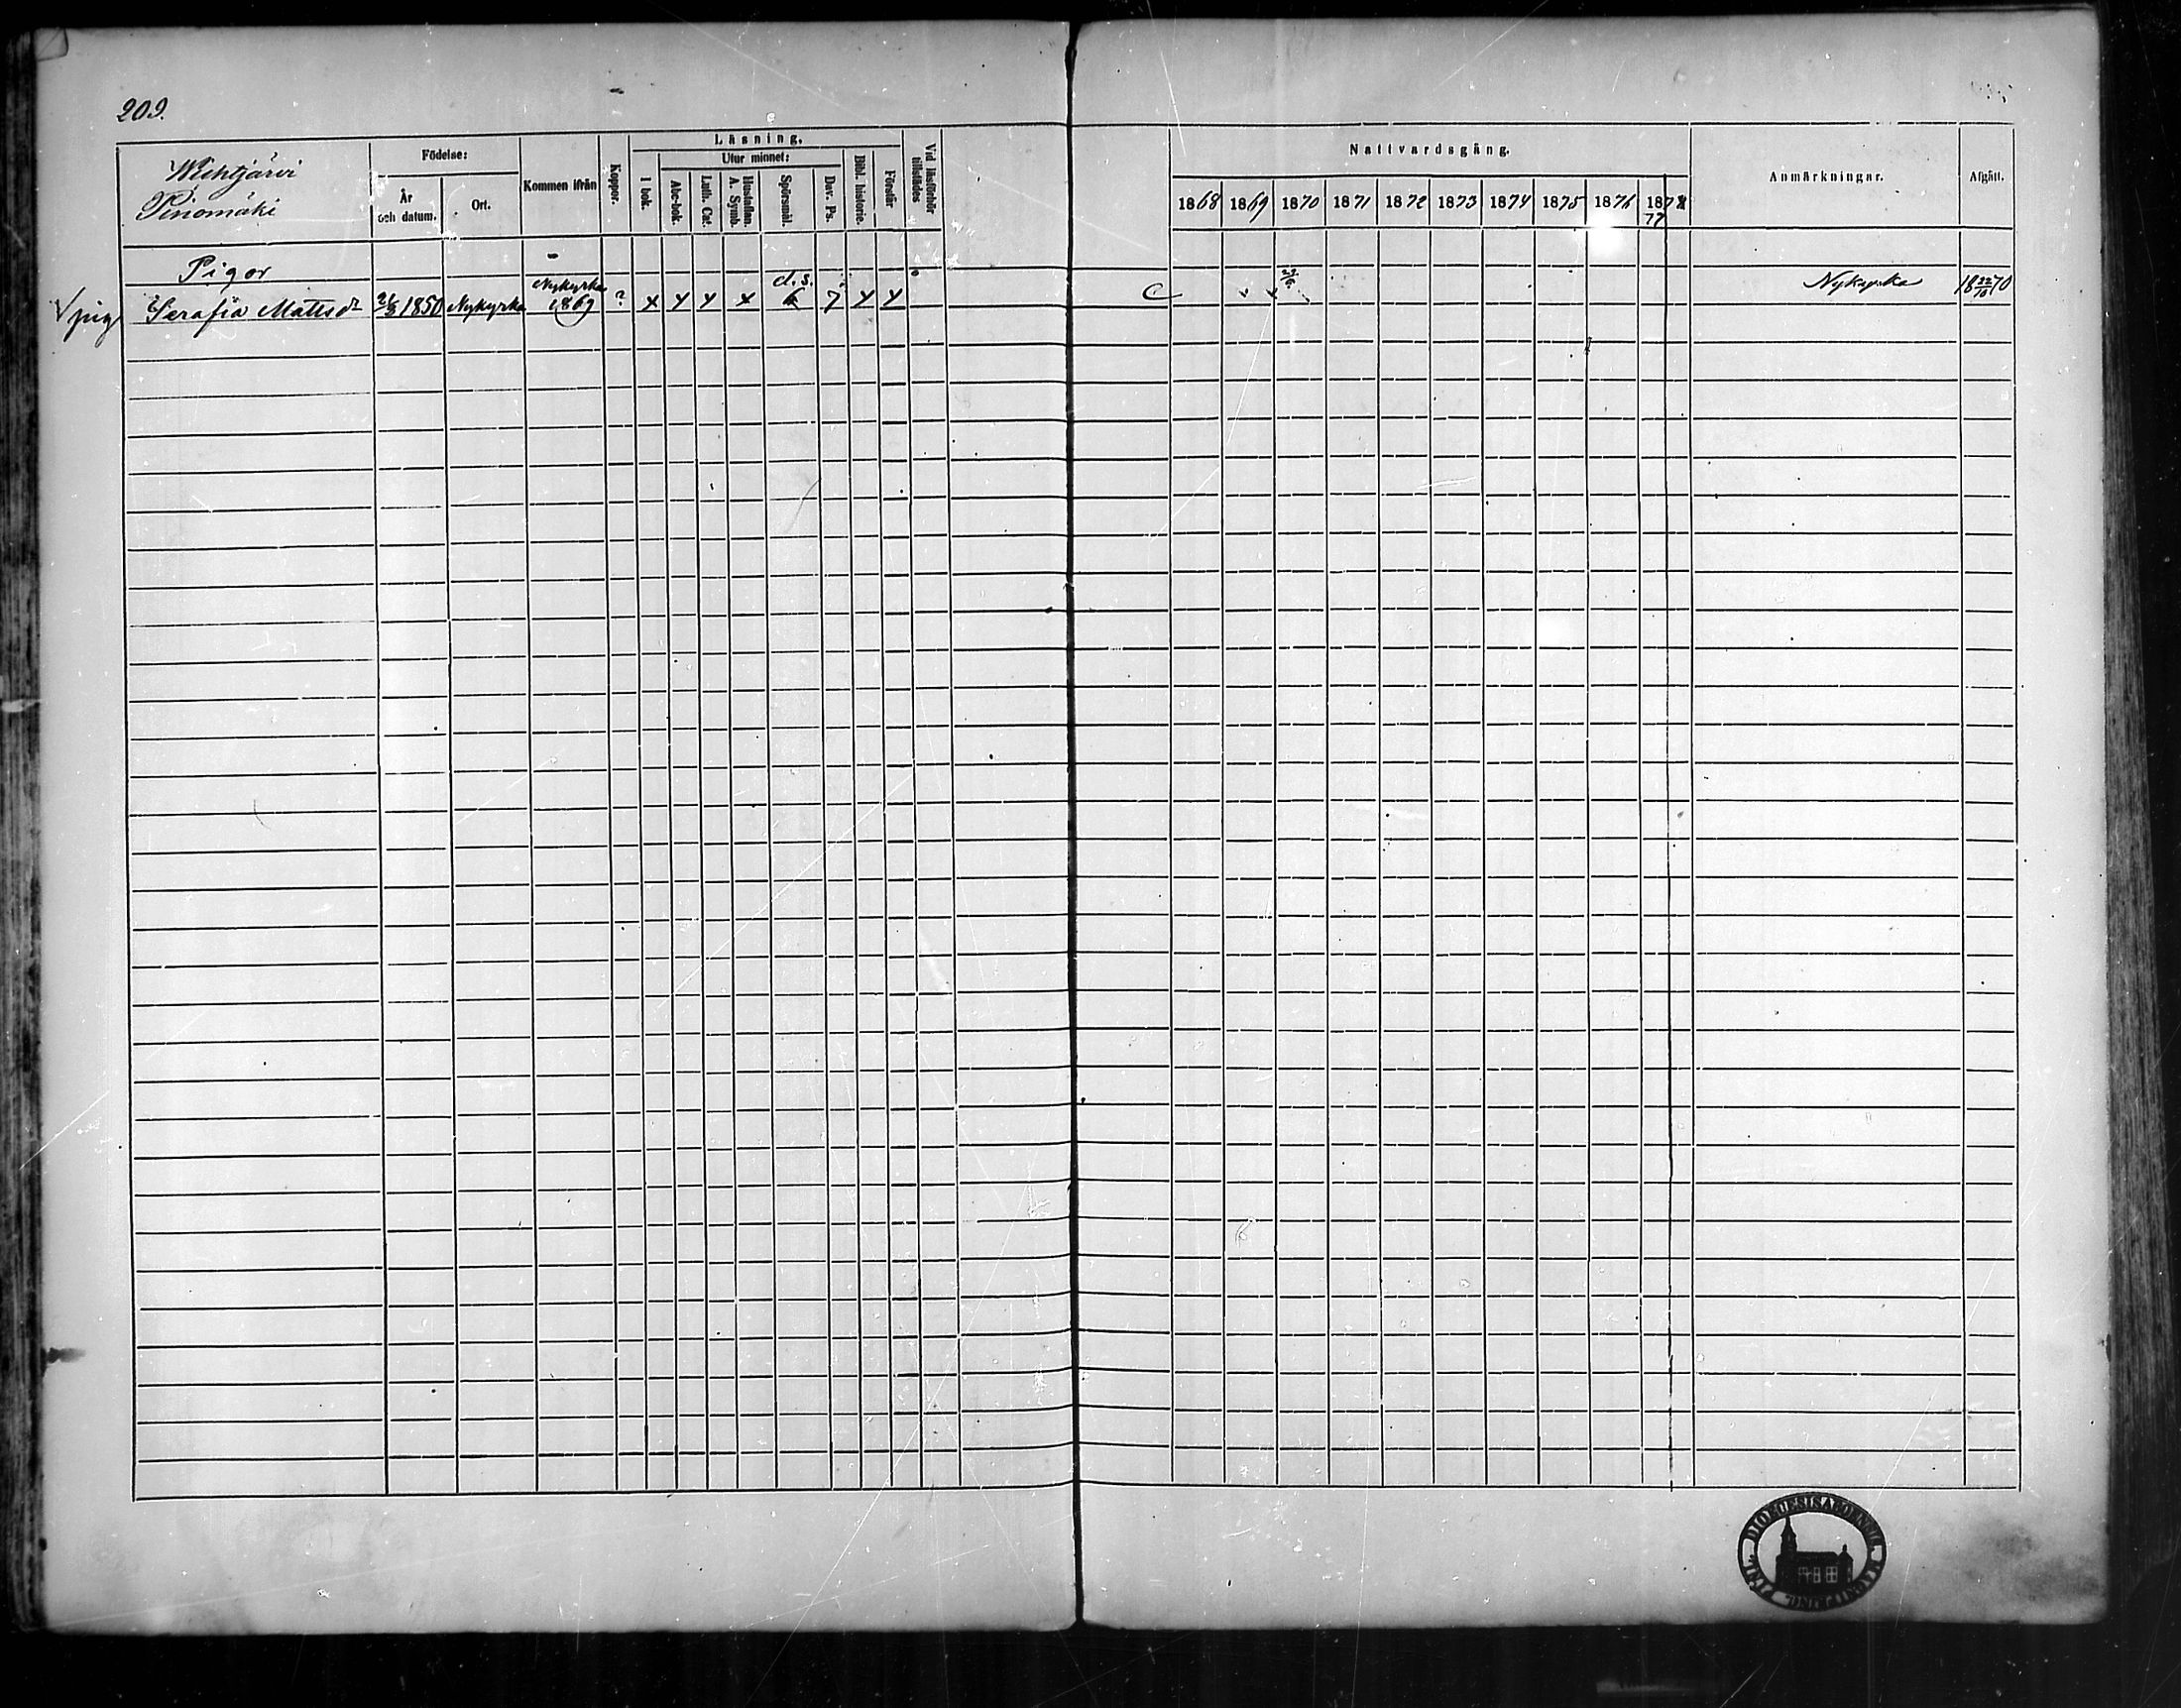 209.
Wehtjärvi
Pinomäki
Födelse:
År och datum.
Ort.
Kommen ifrån
Koppor.
Läsning.
I bok.
Utur minnet:
Abc-bok.
Luth. Cat.
Hustaflan. A. Symb.
Spörsmål.
Dav. Ps.
Bibl. historie.
Förstår
Vid läsförhör tillstädes
Nattvardsgång.
1868 1869 1870 1871 1872 1873 1874 1875 1876 1878
77
Anmärkningar.
Afgått.
Pigor
Nykyrka
d. s.
pig Serafia Mattsdr 1850 Nykyrka 1869 ? x x x x 7 x x C Nykyrka 18 22/10 70